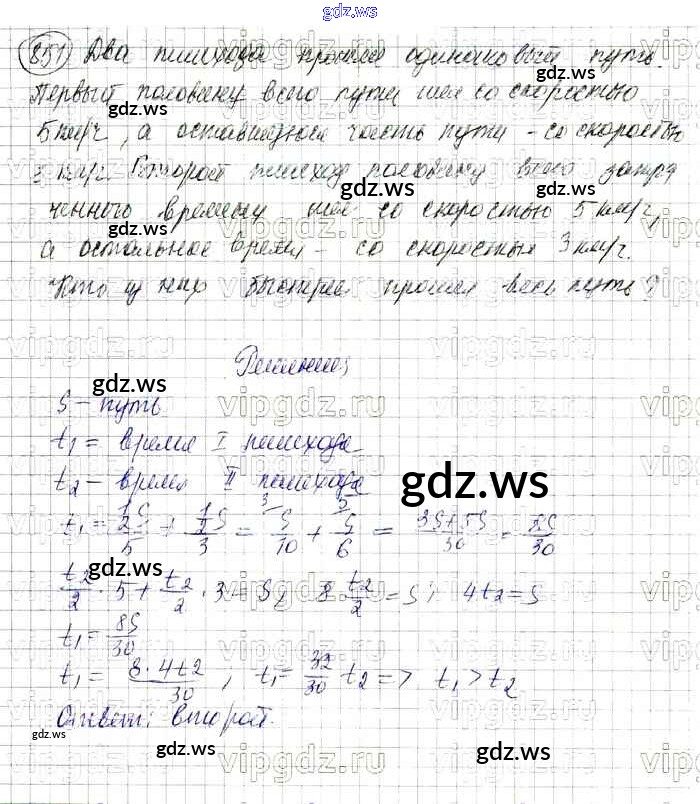 gdz.ws
851) Два пешехода прошли одинаковый путь.
Первый половину всего пути шел со скоростью
5 км/ч, а оставшуюся часть пути – со скоростью
3 км/ч. Второй пешеход половину всего затра
ченного времени шел со скоростью 5 км/ч,
а остальное время – со скоростью 3 км/ч.
Кто из них быстрее прошел весь путь?
Решение:
S – путь
t₁ = время I пешехода
t₂ – время II пешехода
t₁ = (1/2 S)/5 + (1/2 S)/3 = S/10 + S/6 = (3S+5S)/30 = 8S/30
t₂/2 · 5 + t₂/2 · 3 = S; 8 t₂/2 = S; 4t₂ = S
t₁ = 8S/30
t₁ = 8·4t₂/30, t₁ = 32/30 t₂ => t₁ > t₂
Ответ: второй.
gdz.ws